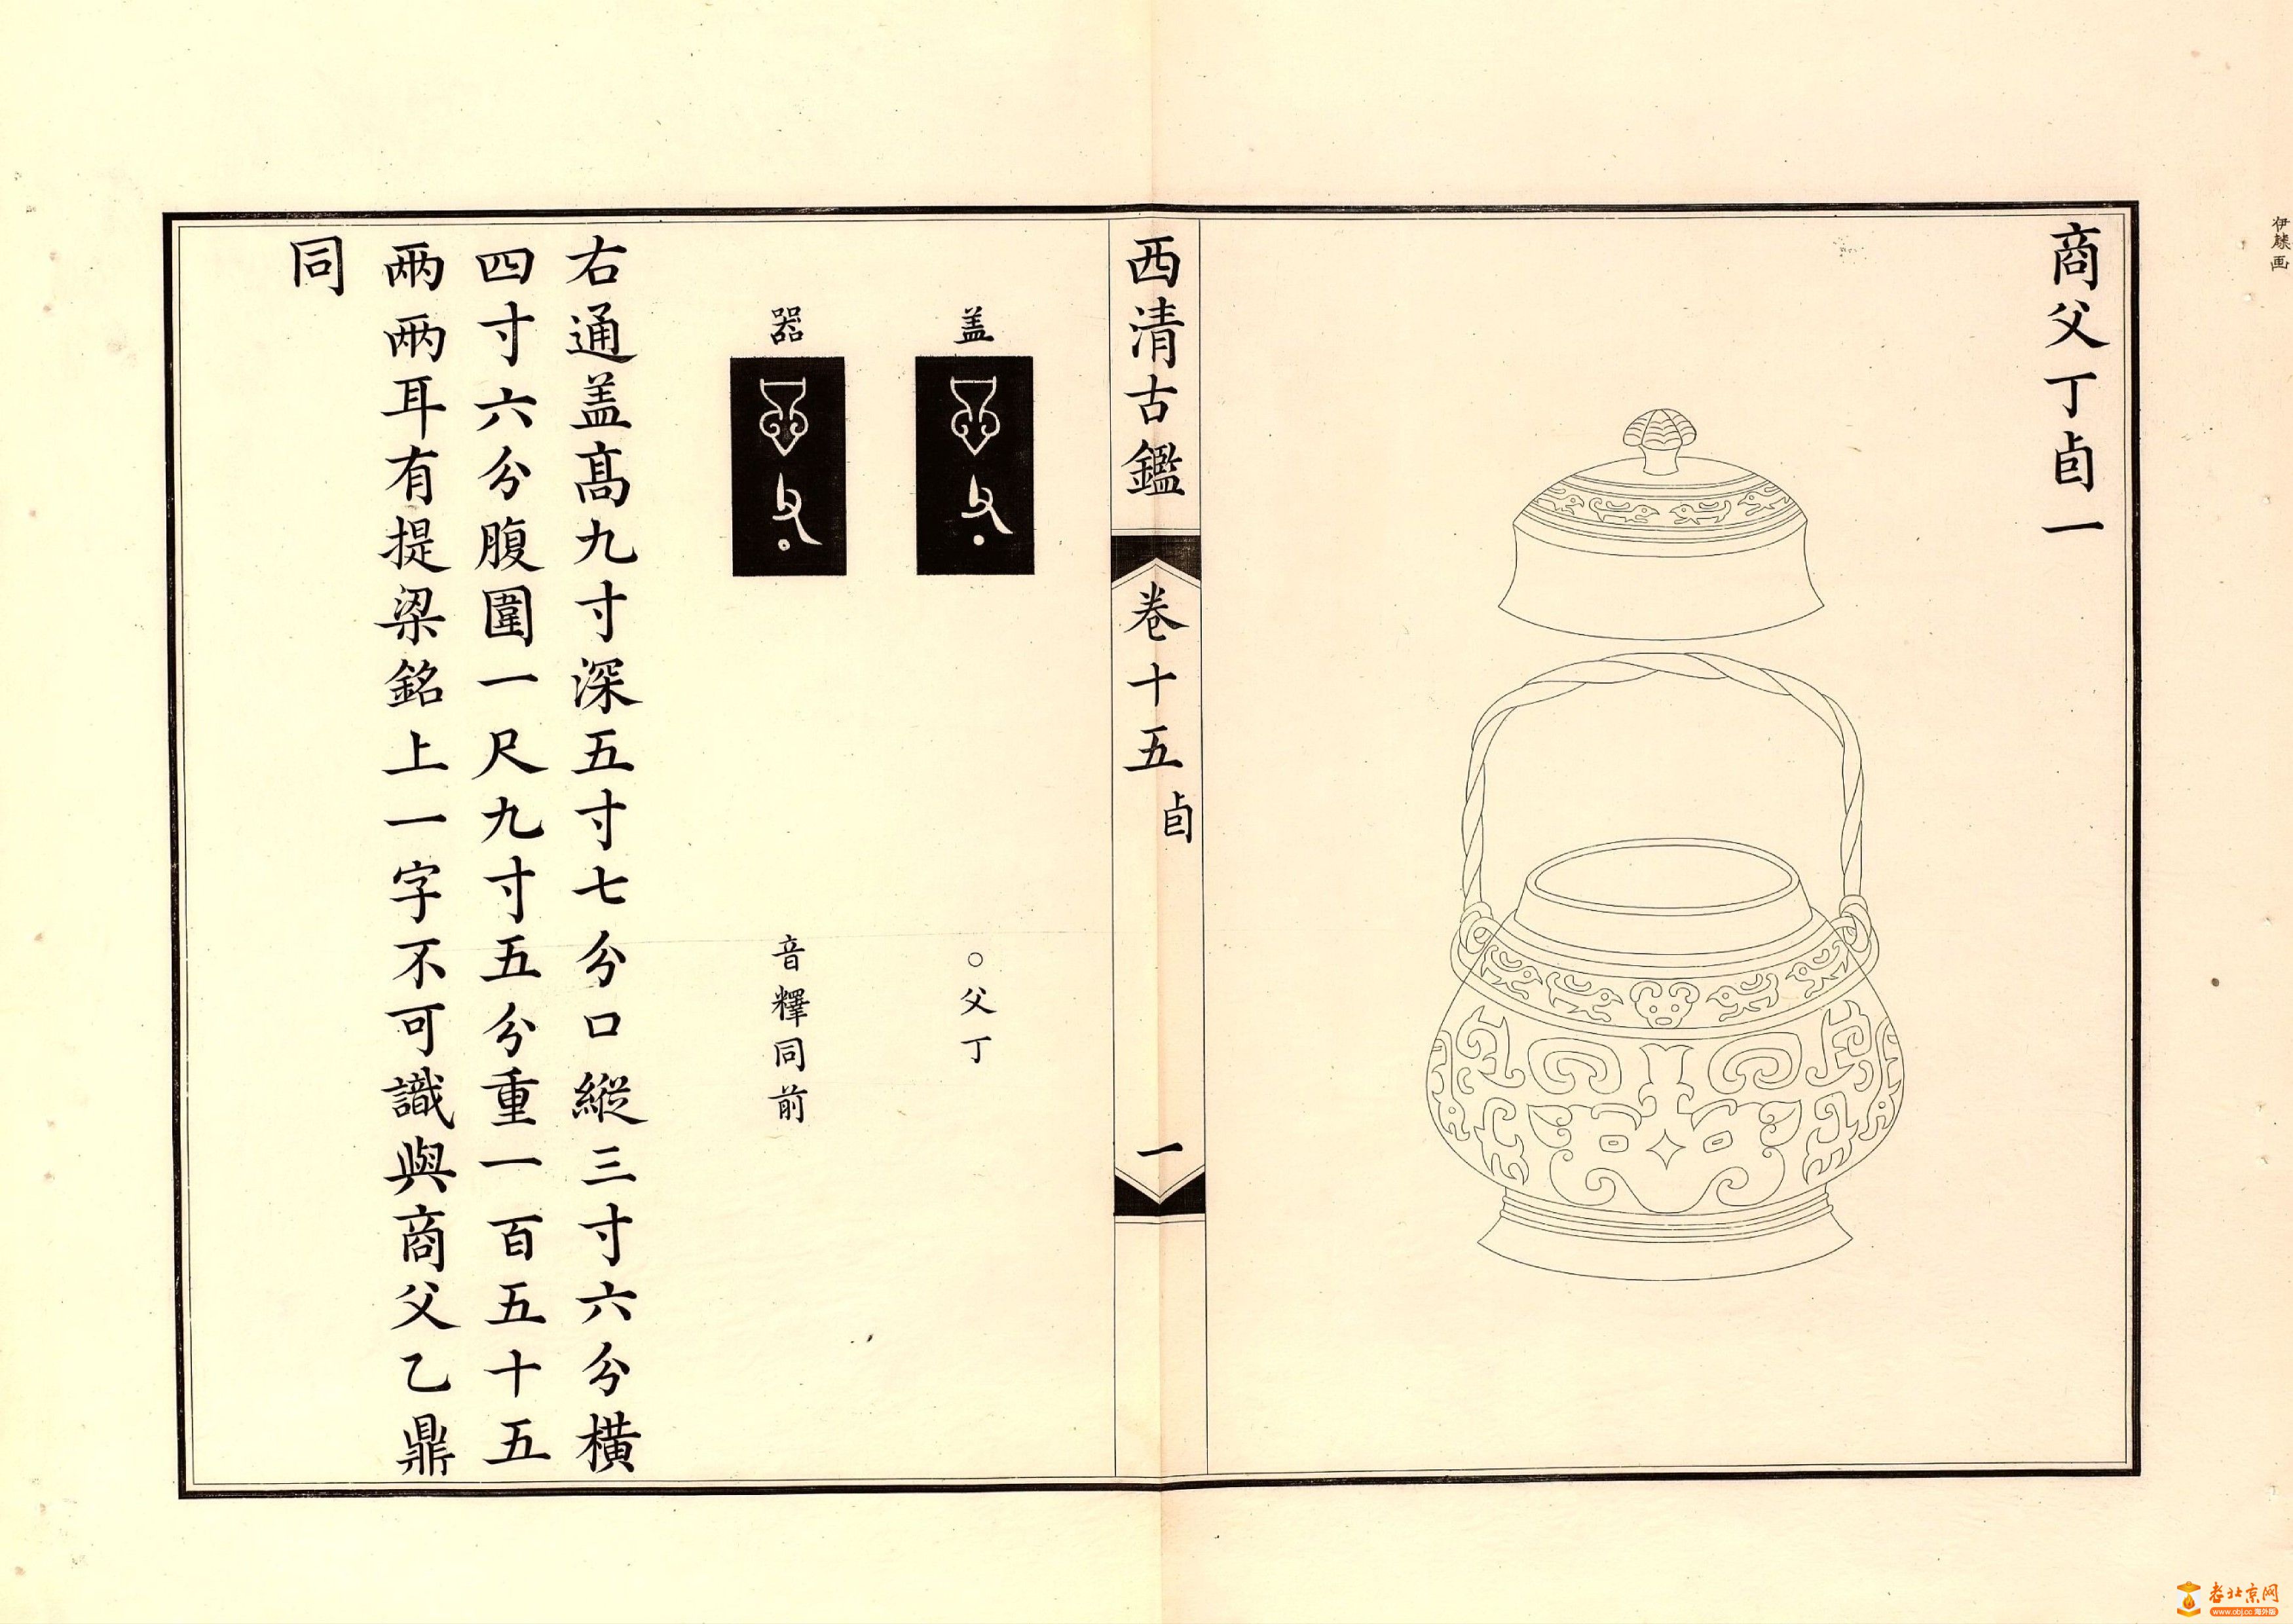 商父丁卣一
西清古鑑
卷十五
卣
一
盖
○父丁
器
音釋同前
右通盖髙九寸深五寸七分口縱三寸六分橫
四寸六分腹圍一尺九寸五分重一百五十五
兩兩耳有提梁銘上一字不可識與商父乙鼎
同
老北京网
www.obj.cc 海外版